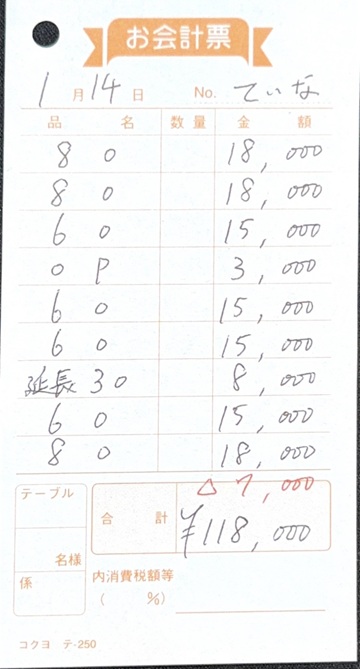 お会計票
1月14日 No. ていな
品名 数量 金額
80 18,000
80 18,000
60 15,000
OP 3,000
60 15,000
60 15,000
延長30 8,000
60 15,000
80 18,000
△7,000
合計 ¥118,000
テーブル
名様
係
内消費税額等
( %)
コクヨ テ-250